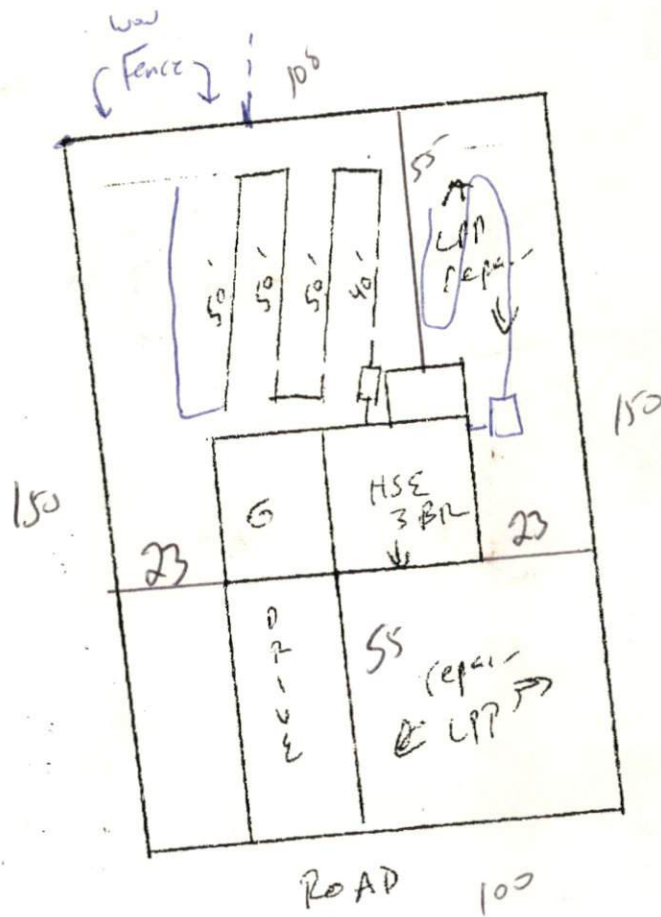 Fence
100
55
A
LPP
repair
50'
50'
50'
40'
150
150
G
HSE
3 BR
23
23
DRIVE
55
repair
LPP
ROAD
100